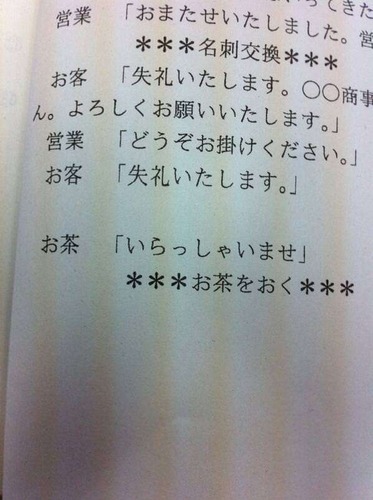 営業　「おまたせいたしました。営
＊＊＊名刺交換＊＊＊
お客　「失礼いたします。○○商事
ん。よろしくお願いいたします。」
営業　「どうぞお掛けください。」
お客　「失礼いたします。」
お茶　「いらっしゃいませ」
＊＊＊お茶をおく＊＊＊